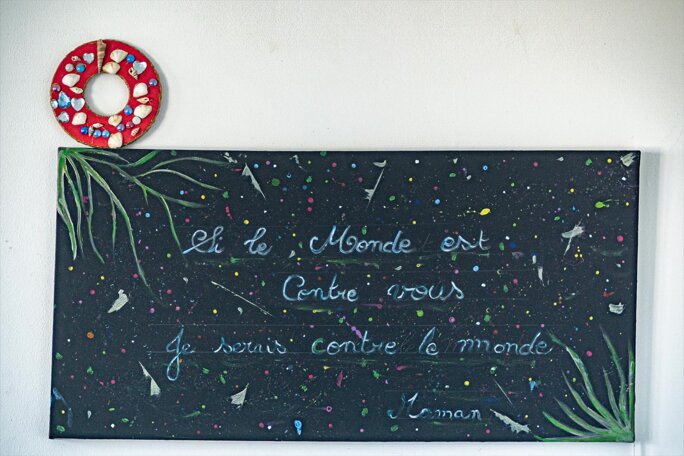 Si le Monde est
Contre vous
Je serais contre le monde
Maman